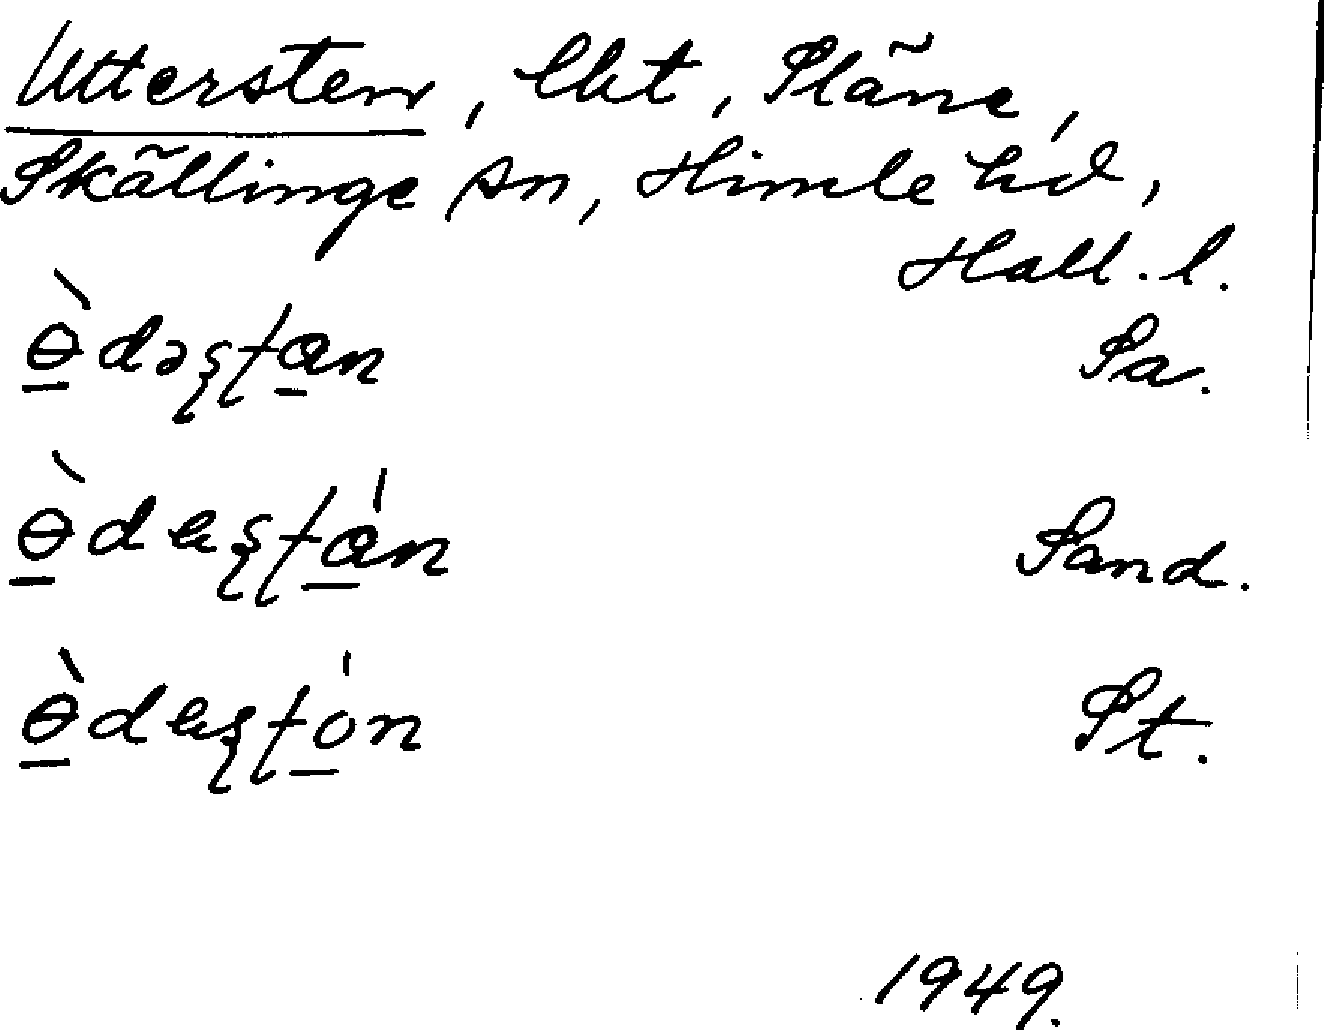 Uttersten, lht, Släne,
Skällinge sn, Himle hd,
Hall. l.
ɵ̠̀dəʂʈa̠n Sa.
ɵ̠̀dɐʂʈá̠n Sand.
ɵ̠̀dɐʂʈó̠n St.
1949.